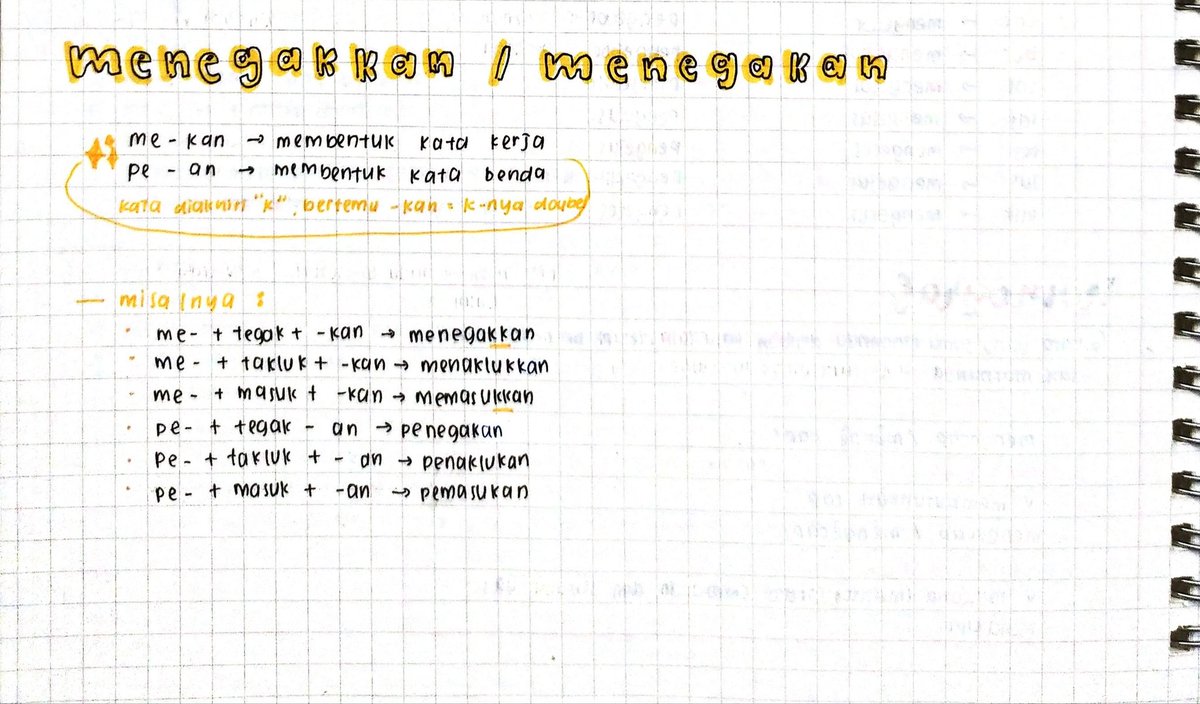 menegakkan / menegakan
me - kan → membentuk kata kerja
pe - an → membentuk kata benda
kata diakhiri "k", bertemu -kan = k-nya double
— misalnya :
· me- + tegak + -kan → menegakkan
· me- + takluk + -kan → menaklukkan
· me- + masuk + -kan → memasukkan
· pe- + tegak - an → penegakan
· pe- + takluk + - an → penaklukan
· pe- + masuk + -an → pemasukan